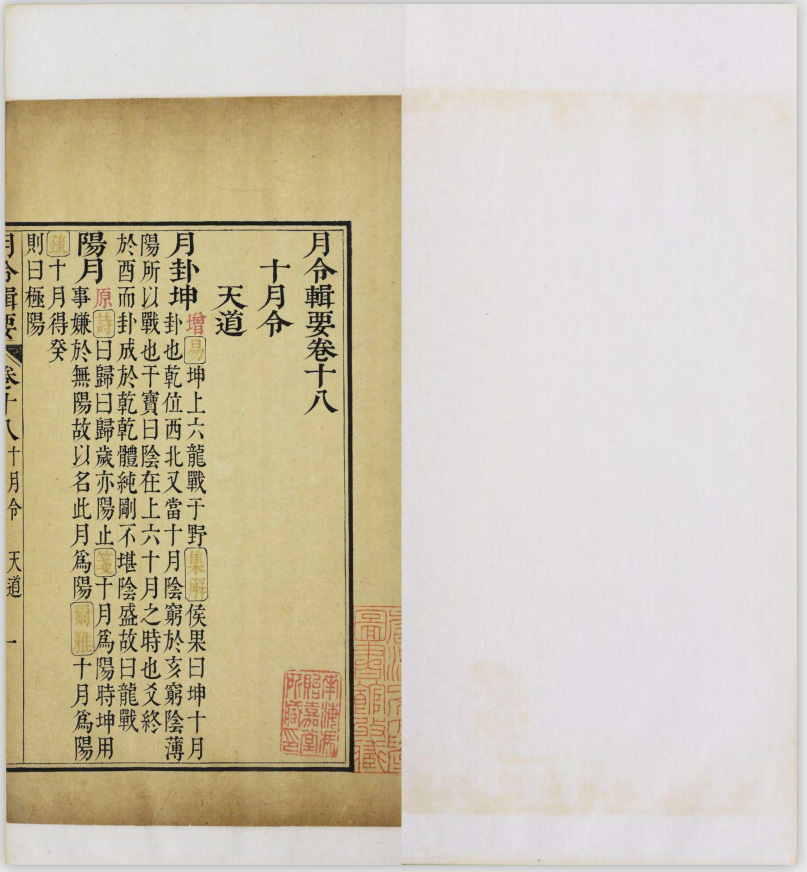 月令輯要卷十八
十月令
天道
月卦坤增易坤上六龍戰于野集解侯果曰坤十月
卦也乾位西北又當十月陰窮於亥窮陰薄
陽所以戰也干寶曰陰在上六十月之時也爻終
於酉而卦成於乾乾體純剛不堪陰盛故曰龍戰
陽月原詩曰歸曰歸歲亦陽止箋十月為陽時坤用
事嫌於無陽故以名此月為陽爾雅十月為陽
疏十月得癸
則曰極陽
月令輯要 卷十八 十月令 天道 一